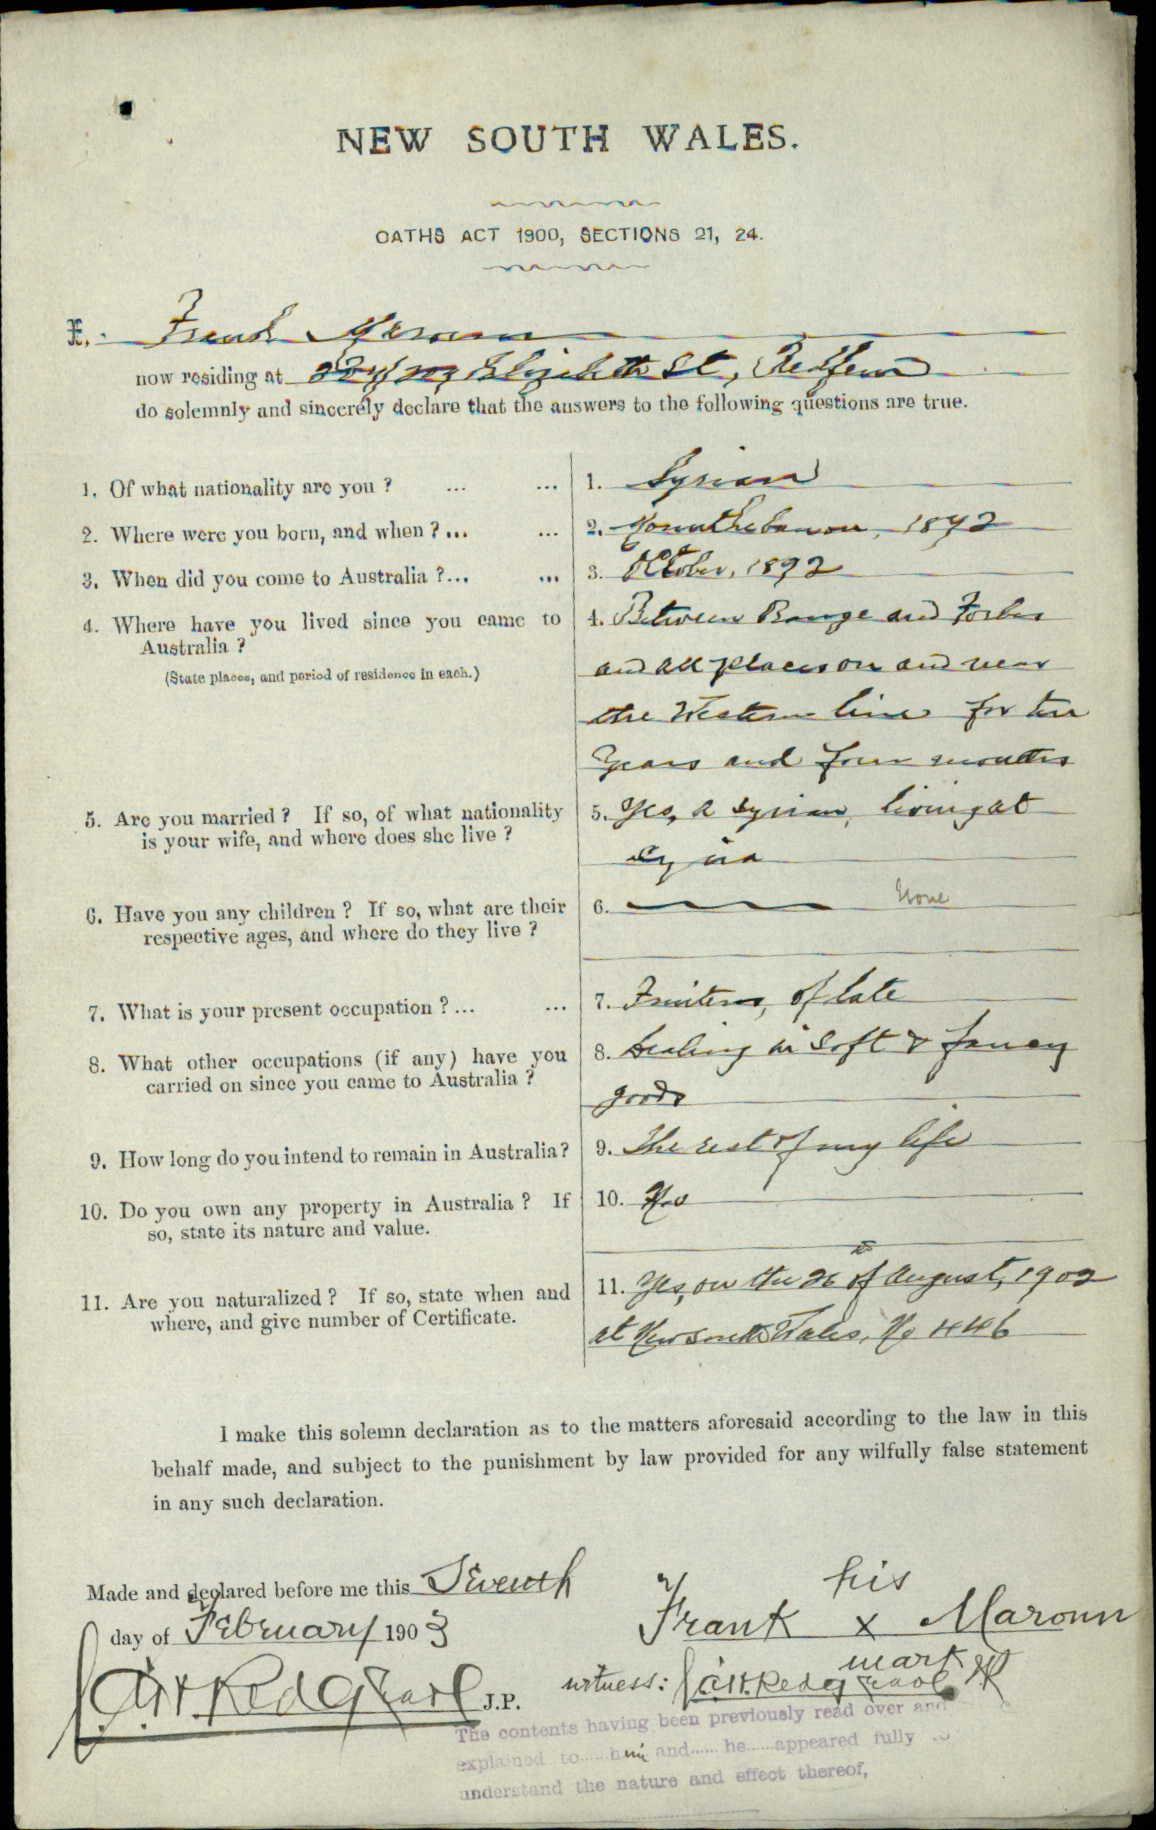 NEW SOUTH WALES.
OATHS ACT 1900, SECTIONS 21, 24.
I, Frank Maroun
now residing at Elizabeth St, Redfern
do solemnly and sincerely declare that the answers to the following questions are true.
1. Of what nationality are you ? ... ... 1. Syrian
2. Where were you born, and when ? ... ... 2. Mount Lebanon, 1872
3. When did you come to Australia ?... ... 3. October, 1892
4. Where have you lived since you came to 4. Between and Forbes
Australia ?
(State places, and period of residence in each.) and all places on and near
the Western line for ten
Years and four months
5. Are you married ? If so, of what nationality 5. Yes, a Syrian, living at
is your wife, and where does she live ?
Syria
6. Have you any children ? If so, what are their 6. None
respective ages, and where do they live ?
7. What is your present occupation ? ... ... 7. of late
8. What other occupations (if any) have you 8. Dealing in Soft & fancy
carried on since you came to Australia ?
goods
9. How long do you intend to remain in Australia? 9. The rest of my life
10. Do you own any property in Australia ? If 10. No
so, state its nature and value.
11. Are you naturalized ? If so, state when and 11. Yes, on the 26th of August, 1902
where, and give number of Certificate.
at New South Wales, No 446
I make this solemn declaration as to the matters aforesaid according to the law in this
behalf made, and subject to the punishment by law provided for any wilfully false statement
in any such declaration.
Made and declared before me this Seventh
day of February 1903
his
Frank x Maroun
mark
witness: J.P.
J.P.
The contents having been previously read over and
explained to......him and......he......appeared fully to
understand the nature and effect thereof,